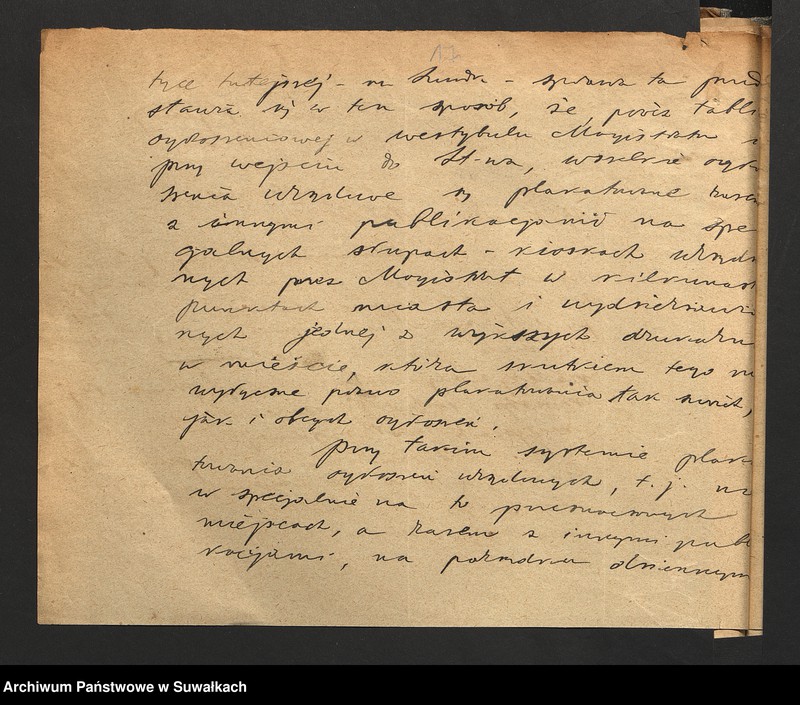 17
tyce tutejszej - w Łucku - sprawa ta przed
stawia się w ten sposób, że, poza tabli
ogłoszeniowej w westybulu Magistratu i
przy wejściu do St-wa, wszelkie ogło
szenia urzędowe są plakatowane razem
z innymi publikacjami na spe
cjalnych słupach - kioskach urządzo
nych przez Magistrat w kilkunast
punktach miasta i wydzierżawio
nych jednej z większych drukarń
w mieście, która skutkiem tego ma
wyłączne prawo plakatowania tak swoich,
jak i obcych ogłoszeń.
Przy takim systemie plaka
towania ogłoszeń urzędowych, t.j. nie
w specjalnie na to przeznaczonych
miejscach, a razem z innymi publi
kacjami, na porządku dziennym
Archiwum Państwowe w Suwałkach